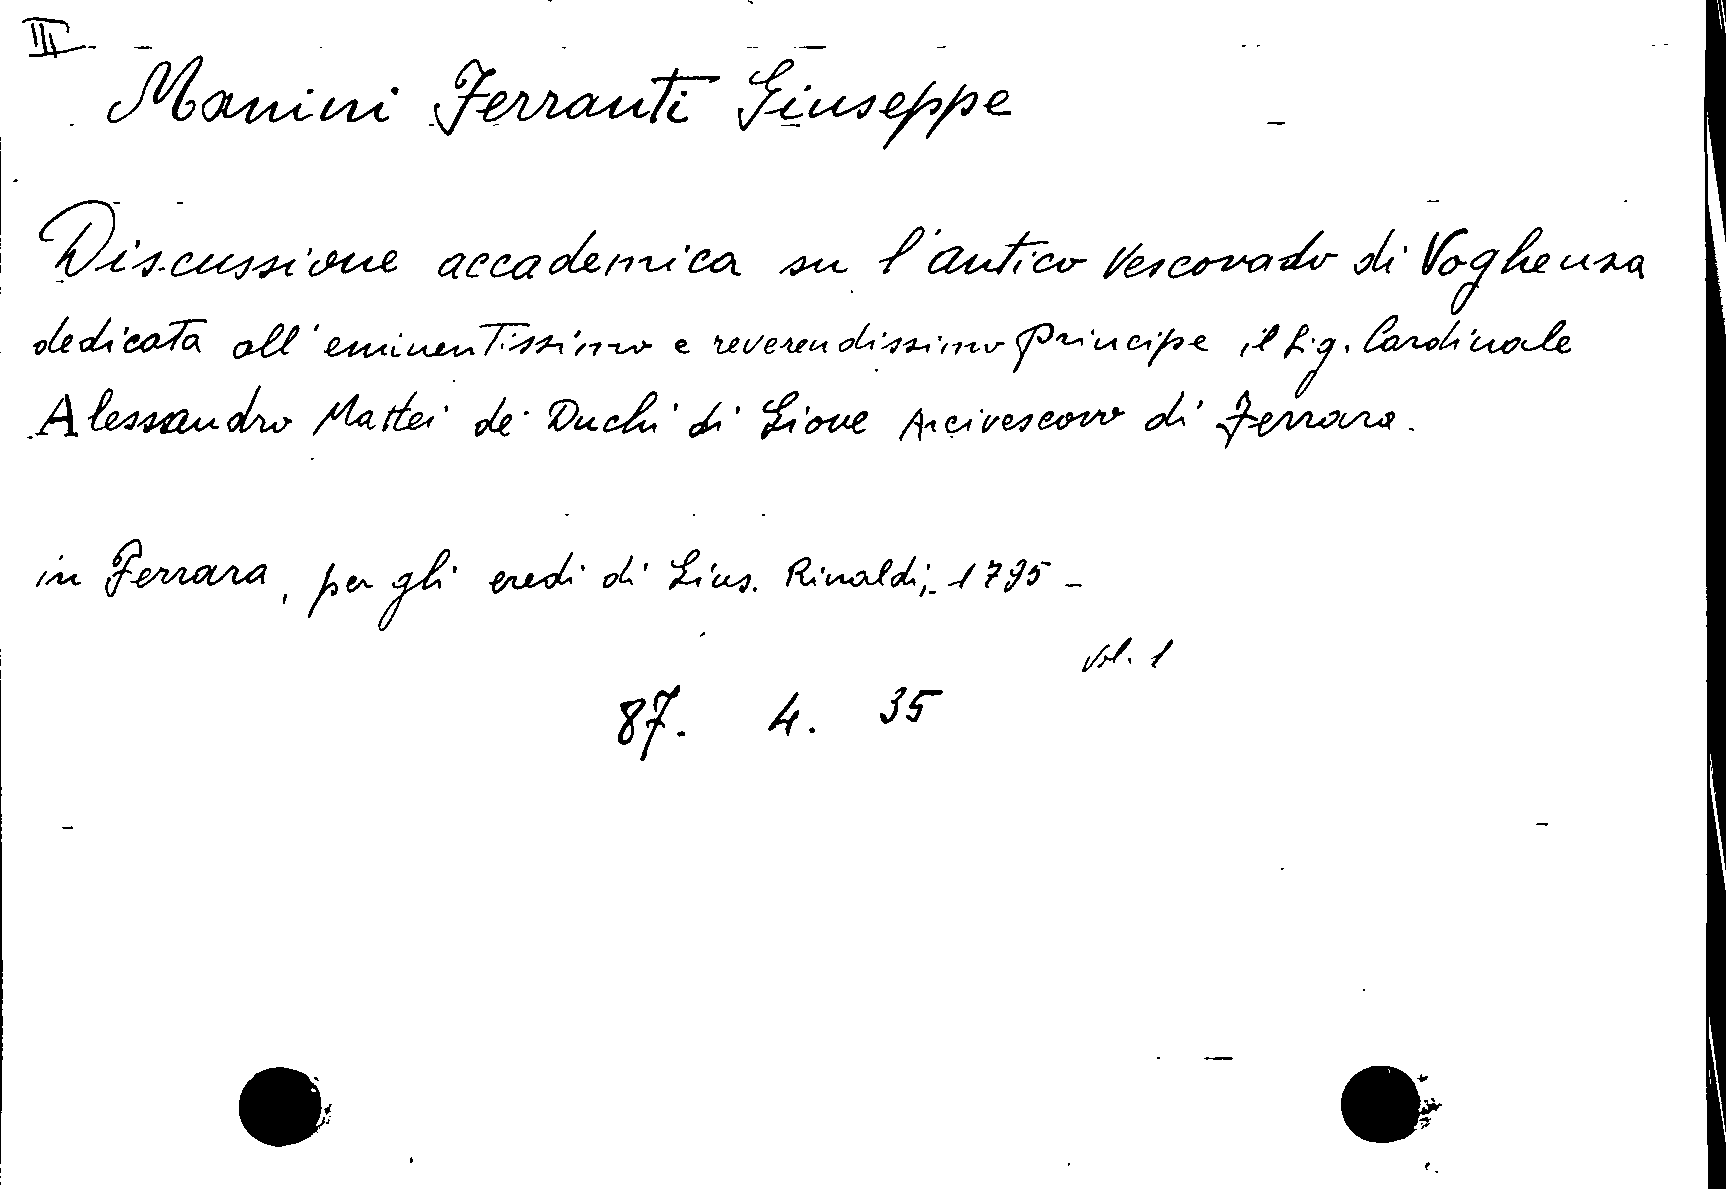 III
Manini Ferranti Giuseppe
Discussione accademica su l'antico Vescovado di Voghenza
dedicata all'eminentissimo e reverendissimo Principe il Sig. Cardinale
Alessandro Mattei de' Duchi di Giove Arcivescovo di Ferrara.
in Ferrara, per gli eredi di Gius. Rinaldi, 1795 -
vol. 1
87. 4. 35